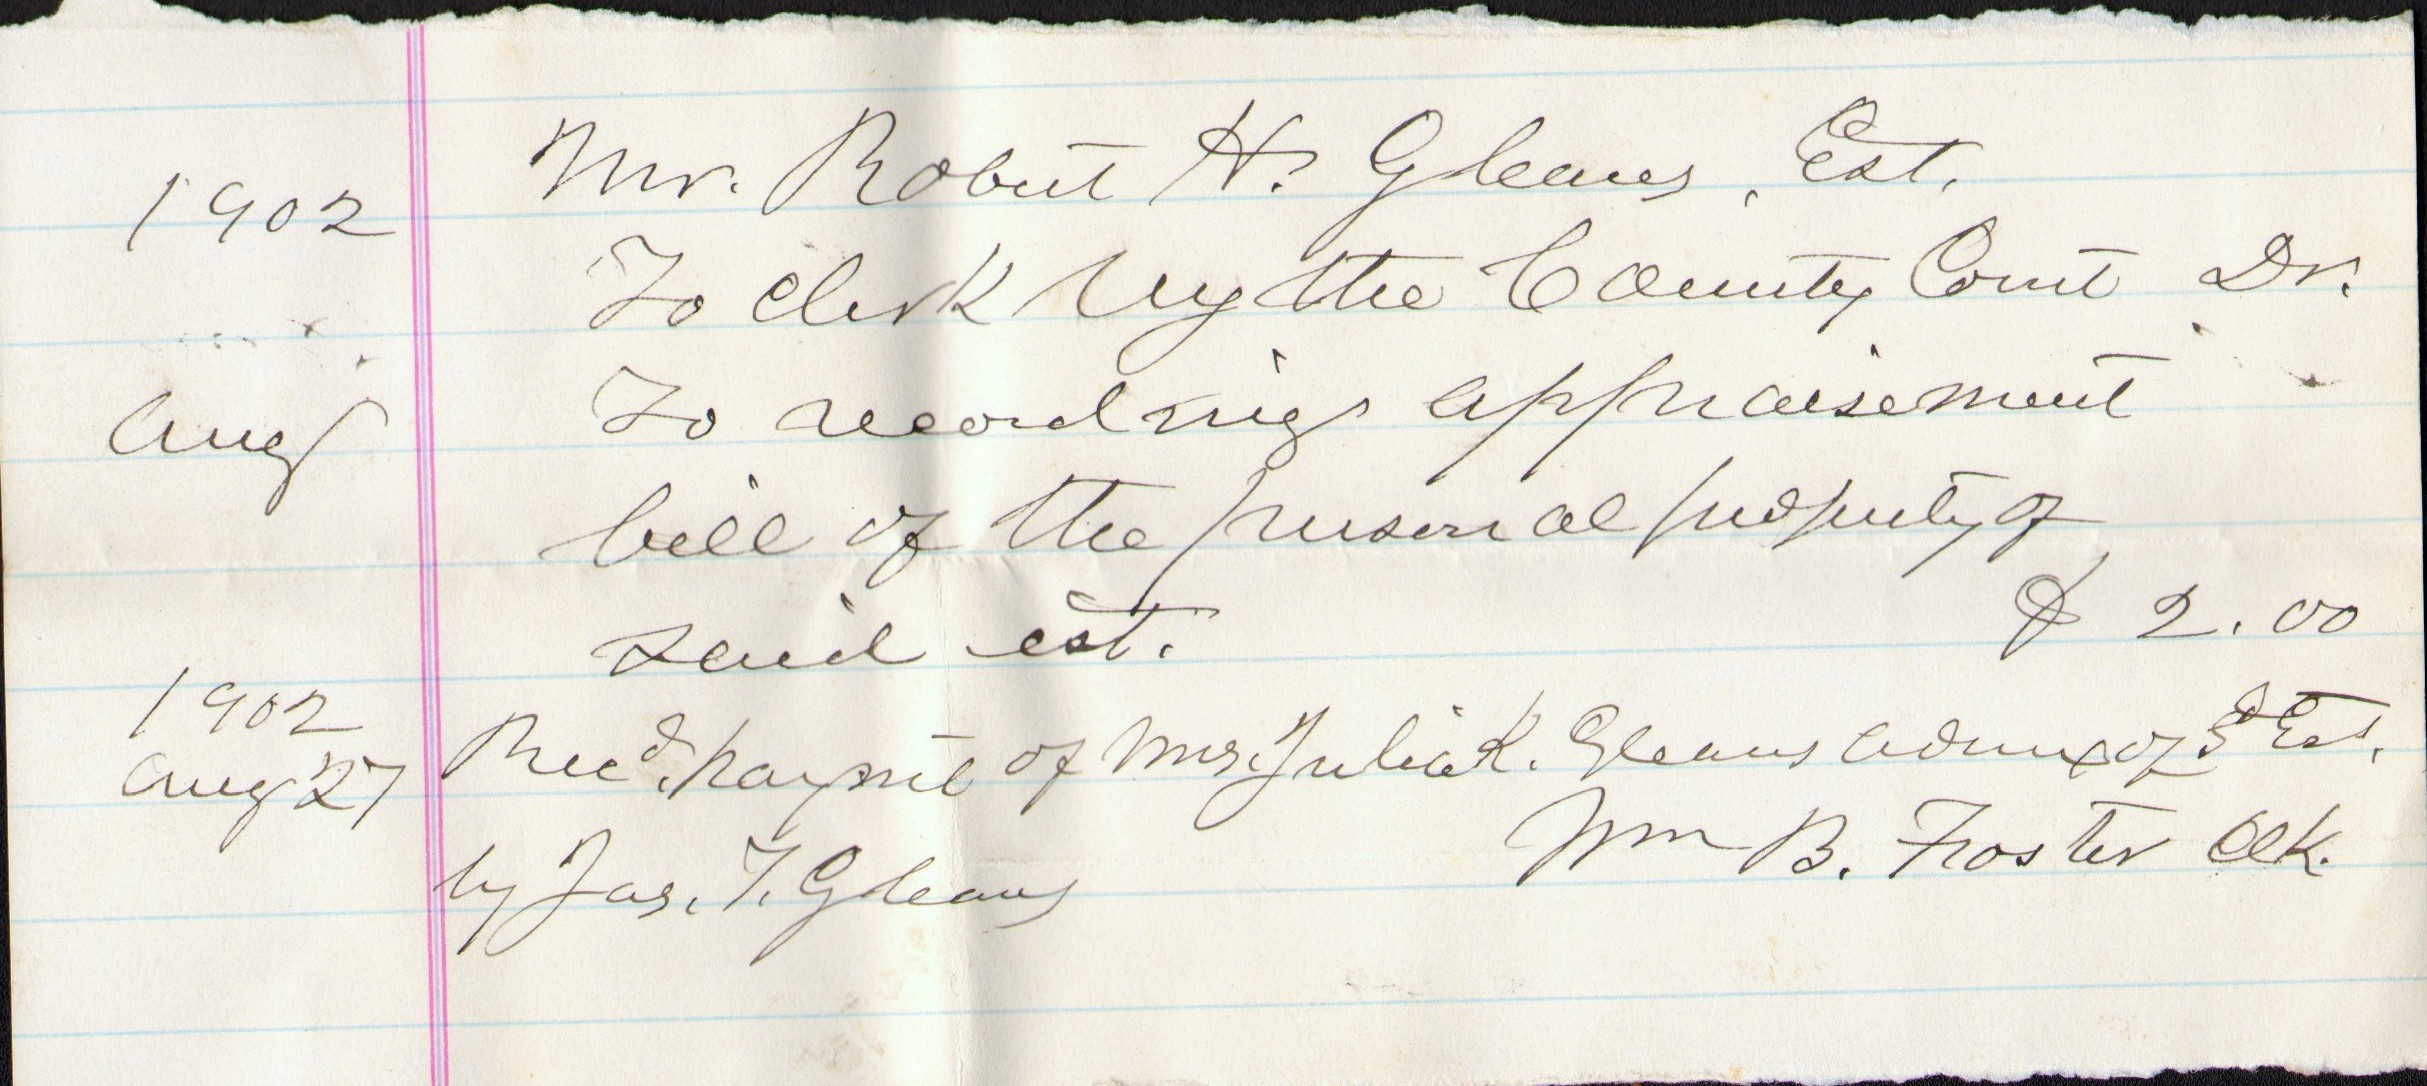 1902 Mr. Robert H. Gleaves, Est.
To Clerk Wythe County Court Dr.
Aug To recording appraisement
bill of the personal property of
said est. $ 2.00
1902
Aug 27 Rec'd. paymt of Mrs. Julia K. Gleaves admx of s'd Est.
by Jas. T. Gleaves Wm B. Foster Clk.